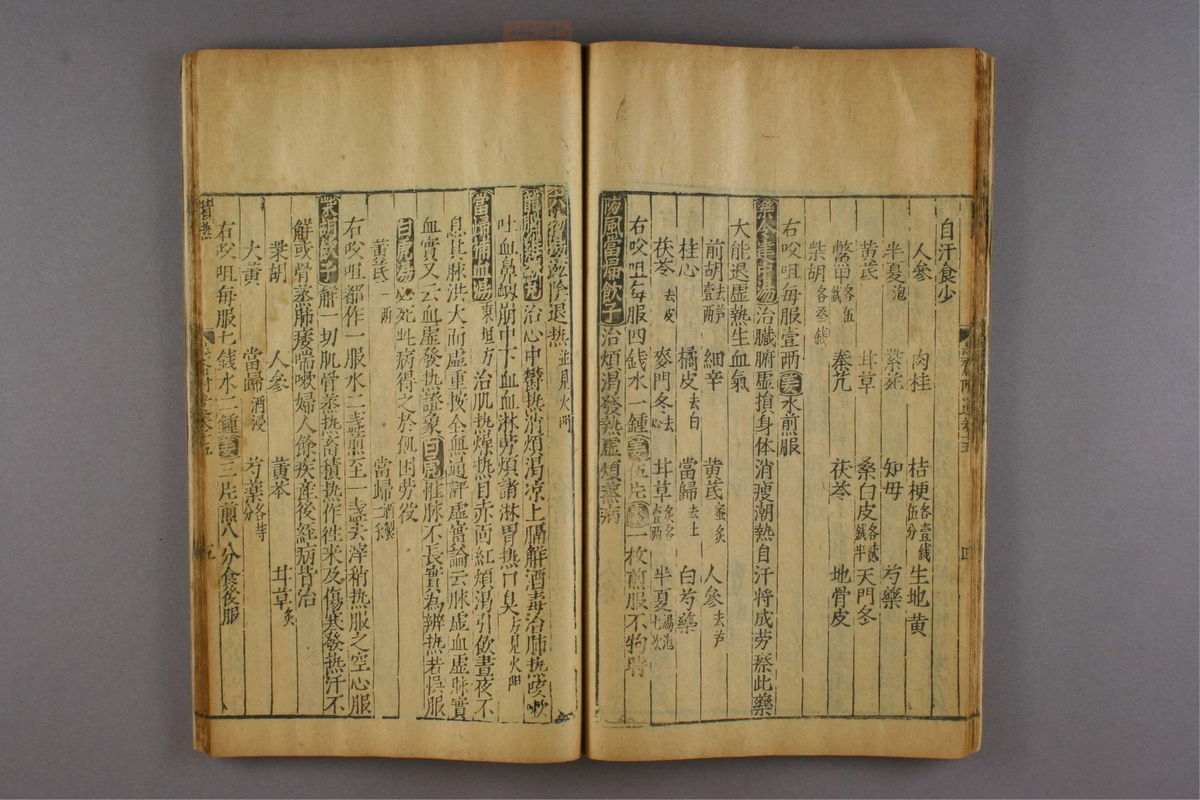 自汗食少
人參 肉桂 桔梗各壹錢伍分 生地黃
半夏泡 紫菀 知母 芍藥
黃芪 甘草 桑白皮各貳錢半 天門冬
鱉甲各伍錢 秦艽 茯苓 地骨皮
柴胡各叁錢
右㕮咀每服壹兩姜水煎服
樂令建中湯治臟腑虛損身体消瘦潮熱自汗將成劳瘵此藥
大能退虛熱生血氣
前胡去芦壹兩 細辛 黃芪蜜炙 人參去芦
桂心 橘皮去白 當歸去土 白芍藥
茯苓去皮 麥門冬去心 甘草炙各壹兩 半夏湯泡七次
右㕮咀每服四錢水一鍾姜伍片棗一枚煎服不拘時
防風當歸飲子治煩渴發熱虛煩蒸病
六物湯滋陰退热並見火門
龍腦雞蘇丸治心中鬱热消煩渴凉上膈解酒毒治肺热咳嗽
吐血鼻衄崩中下血血淋劳煩諸淋胃热口臭方見火門
當歸補血湯東垣方治肌热燥热目赤面紅煩渴引飲晝夜不
息其脉洪大而虛重按全無通評虛實論云脉虛血虛脉實
血實又云血虛發热證象白虎惟脉不長實為辨热若悞服
白虎湯必死此病得之於飢困劳役
黃芪一兩 當歸二錢酒製
右㕮咀都作一服水二盞煎至一盞去滓稍热服之空心服
柴胡飲子解一切肌骨蒸热畜積热作徃来及傷寒發热汗不
解或骨蒸肺痿喘嗽婦人餘疾産後經病皆治
柴胡 人參 黃芩 甘草炙
大黃 當歸酒浸 芍藥各等分
右㕮咀每服七錢水二鍾姜三片煎八分食後服
五